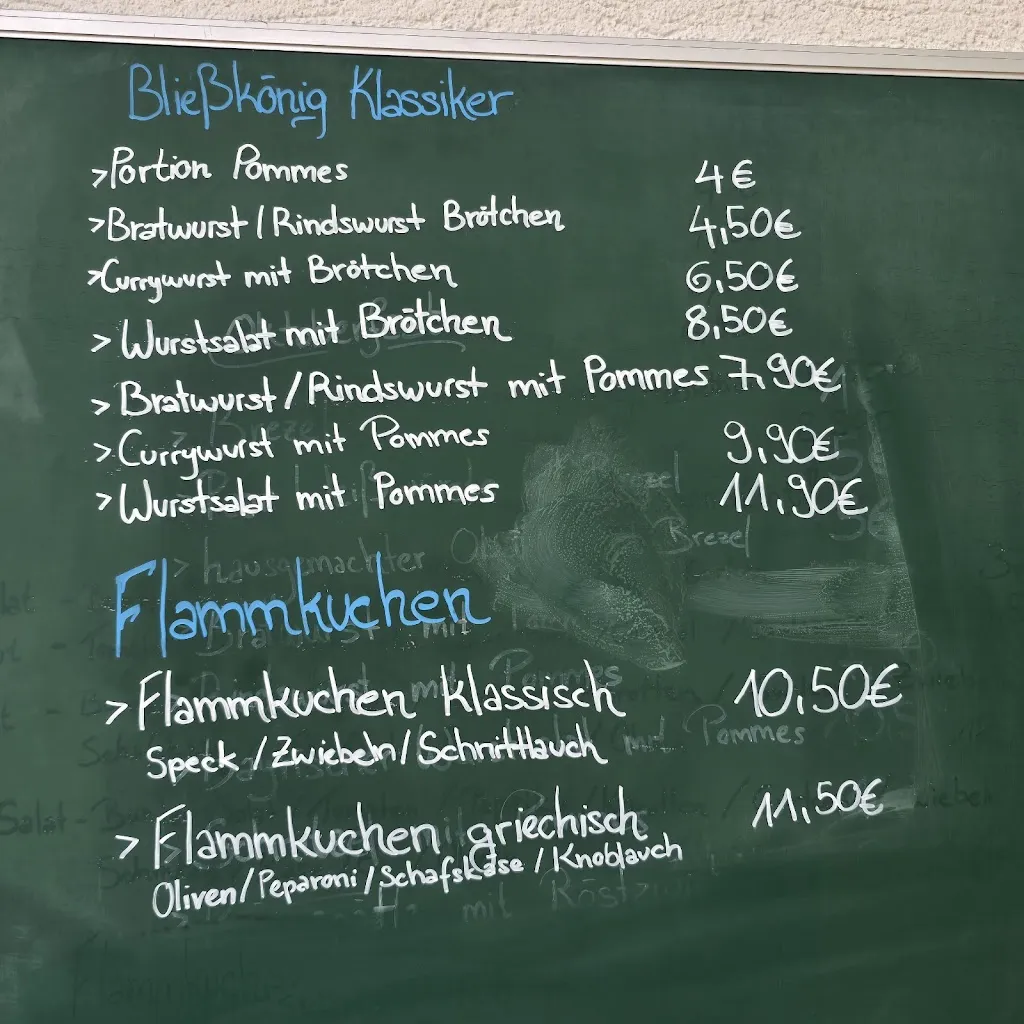 Bließkönig Klassiker
>Portion Pommes 4€
>Bratwurst/Rindswurst Brötchen 4,50€
>Currywurst mit Brötchen 6,50€
>Wurstsalat mit Brötchen 8,50€
>Bratwurst/Rindswurst mit Pommes 7,90€
>Currywurst mit Pommes 9,90€
>Wurstsalat mit Pommes 11,90€
Brezel
>hausgemachter
Flammkuchen
mit Pommes
>Flammkuchen klassisch 10,50€
Speck/Zwiebeln/Schnittlauch
mit Pommes
>Flammkuchen griechisch 11,50€
Oliven/Peparoni/Schafskäse/Knoblauch
mit